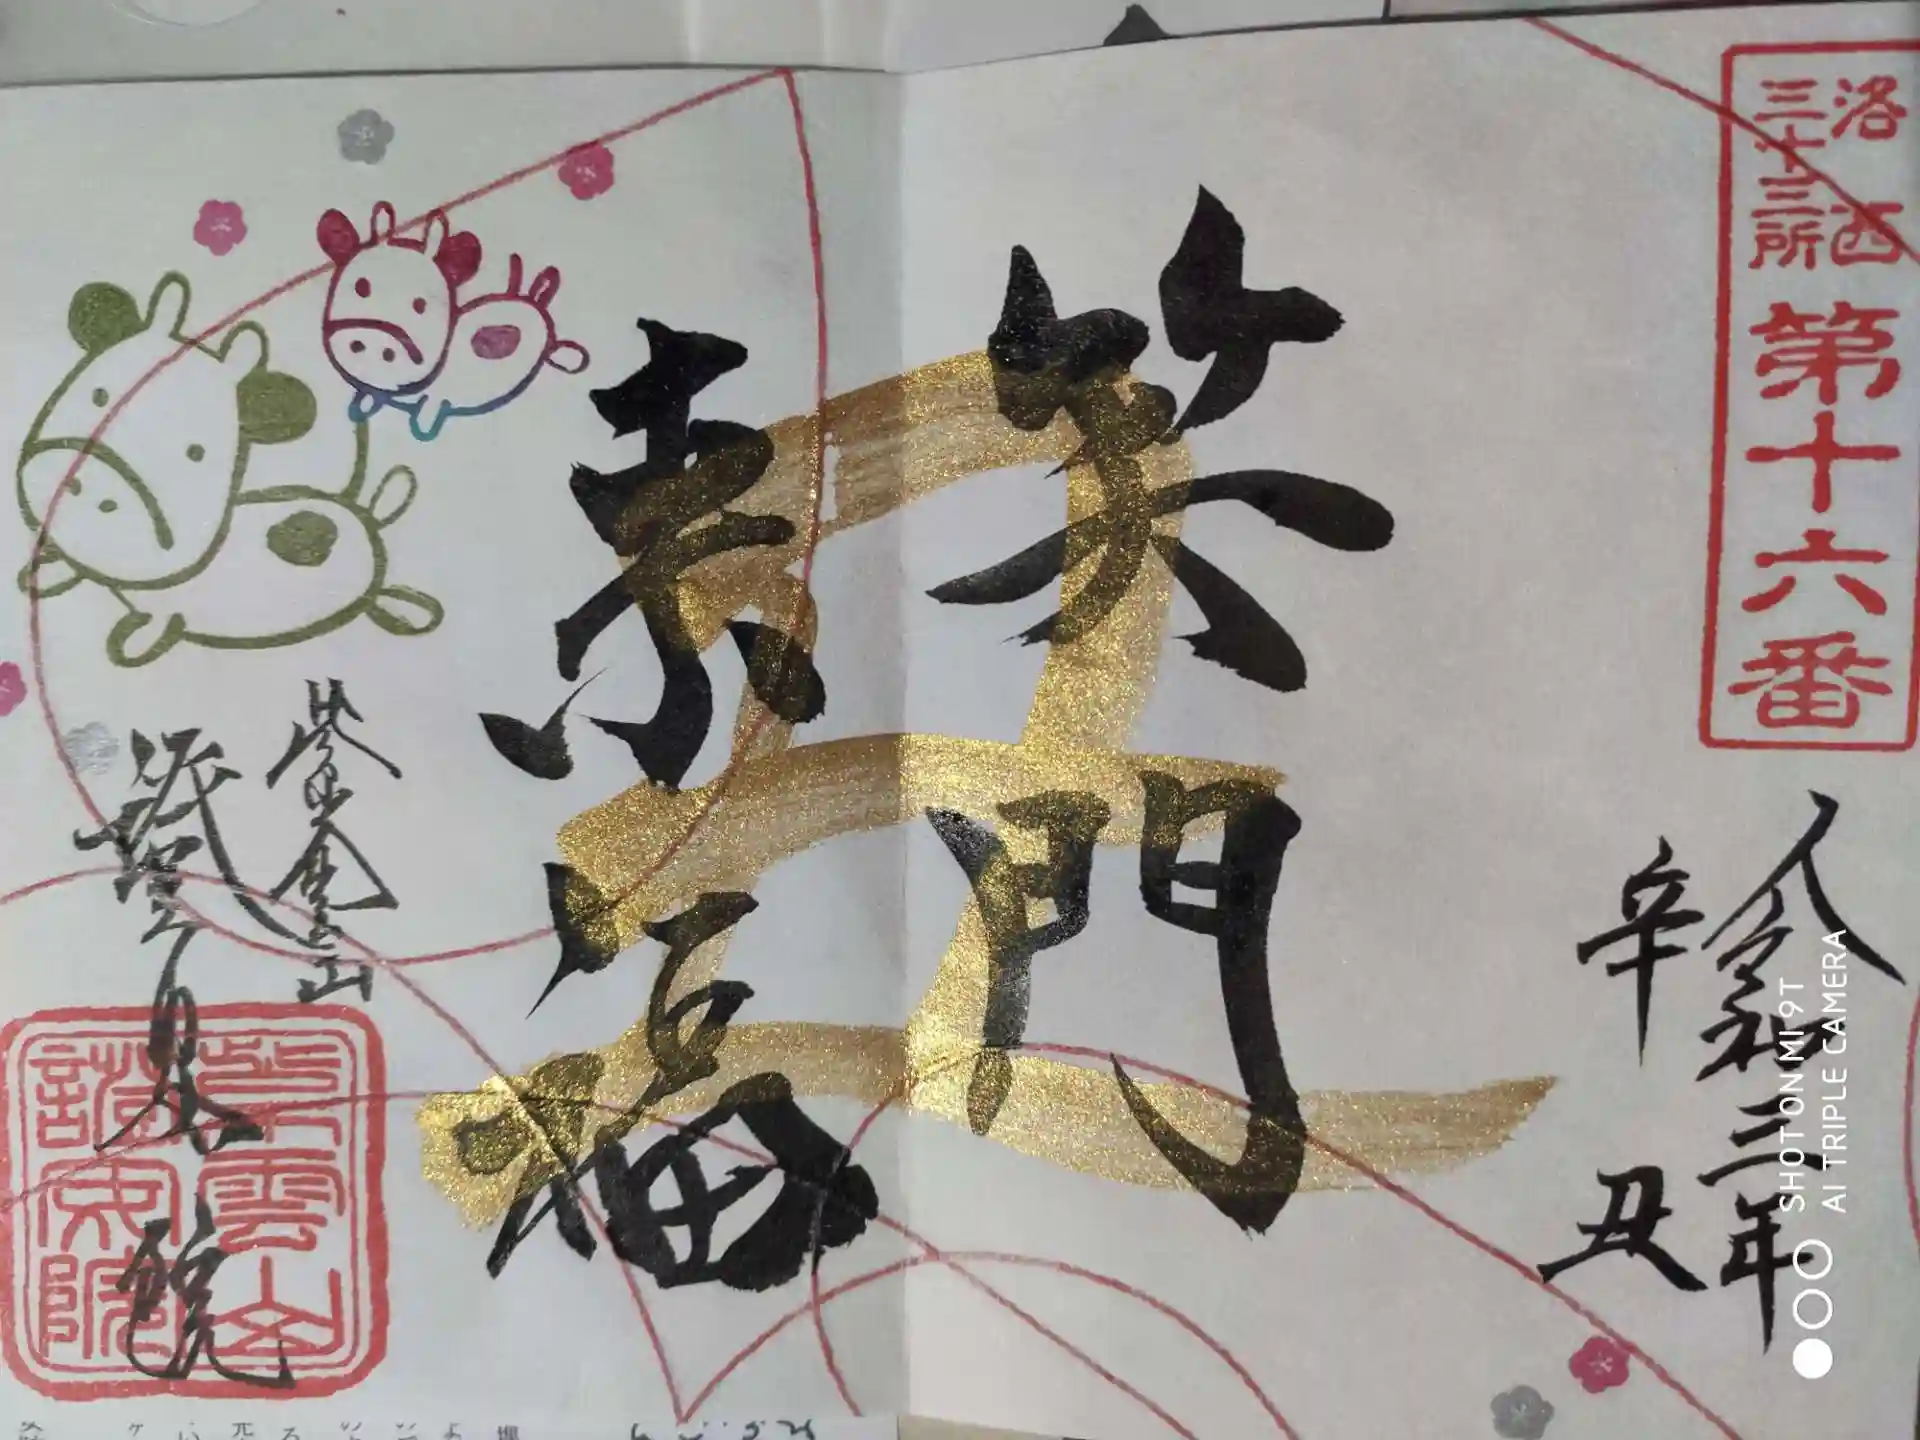 洛西
三十三所
第十六番
令和三年
辛丑
笑門
来福
丑
紫雲山
證安院
紫雲山
證安院
SHOT ON MI 9T
AI TRIPLE CAMERA